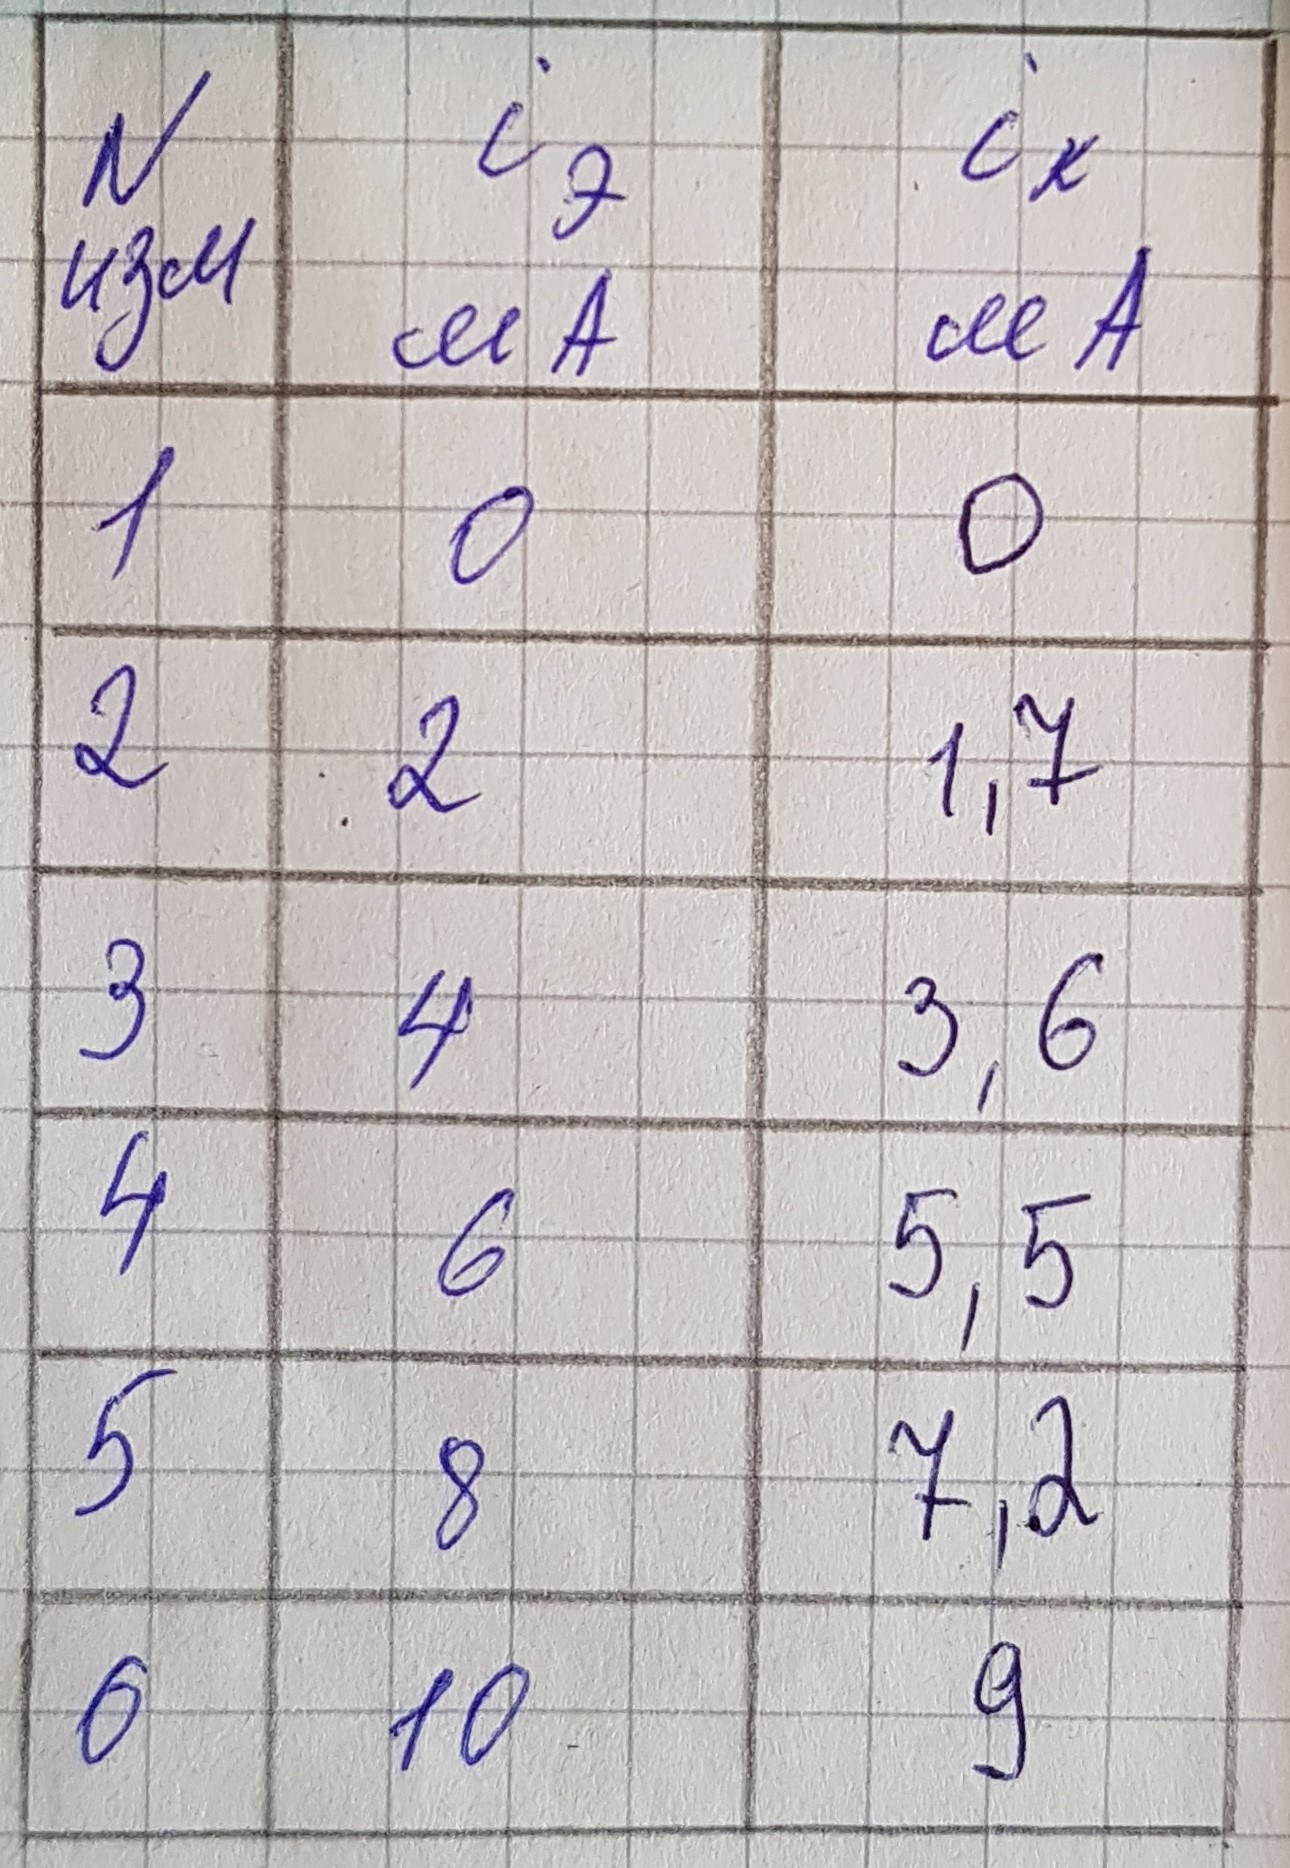 N изм iэ мА iк мА
1 0 0
2 2 1,7
3 4 3,6
4 6 5,5
5 8 7,2
6 10 9